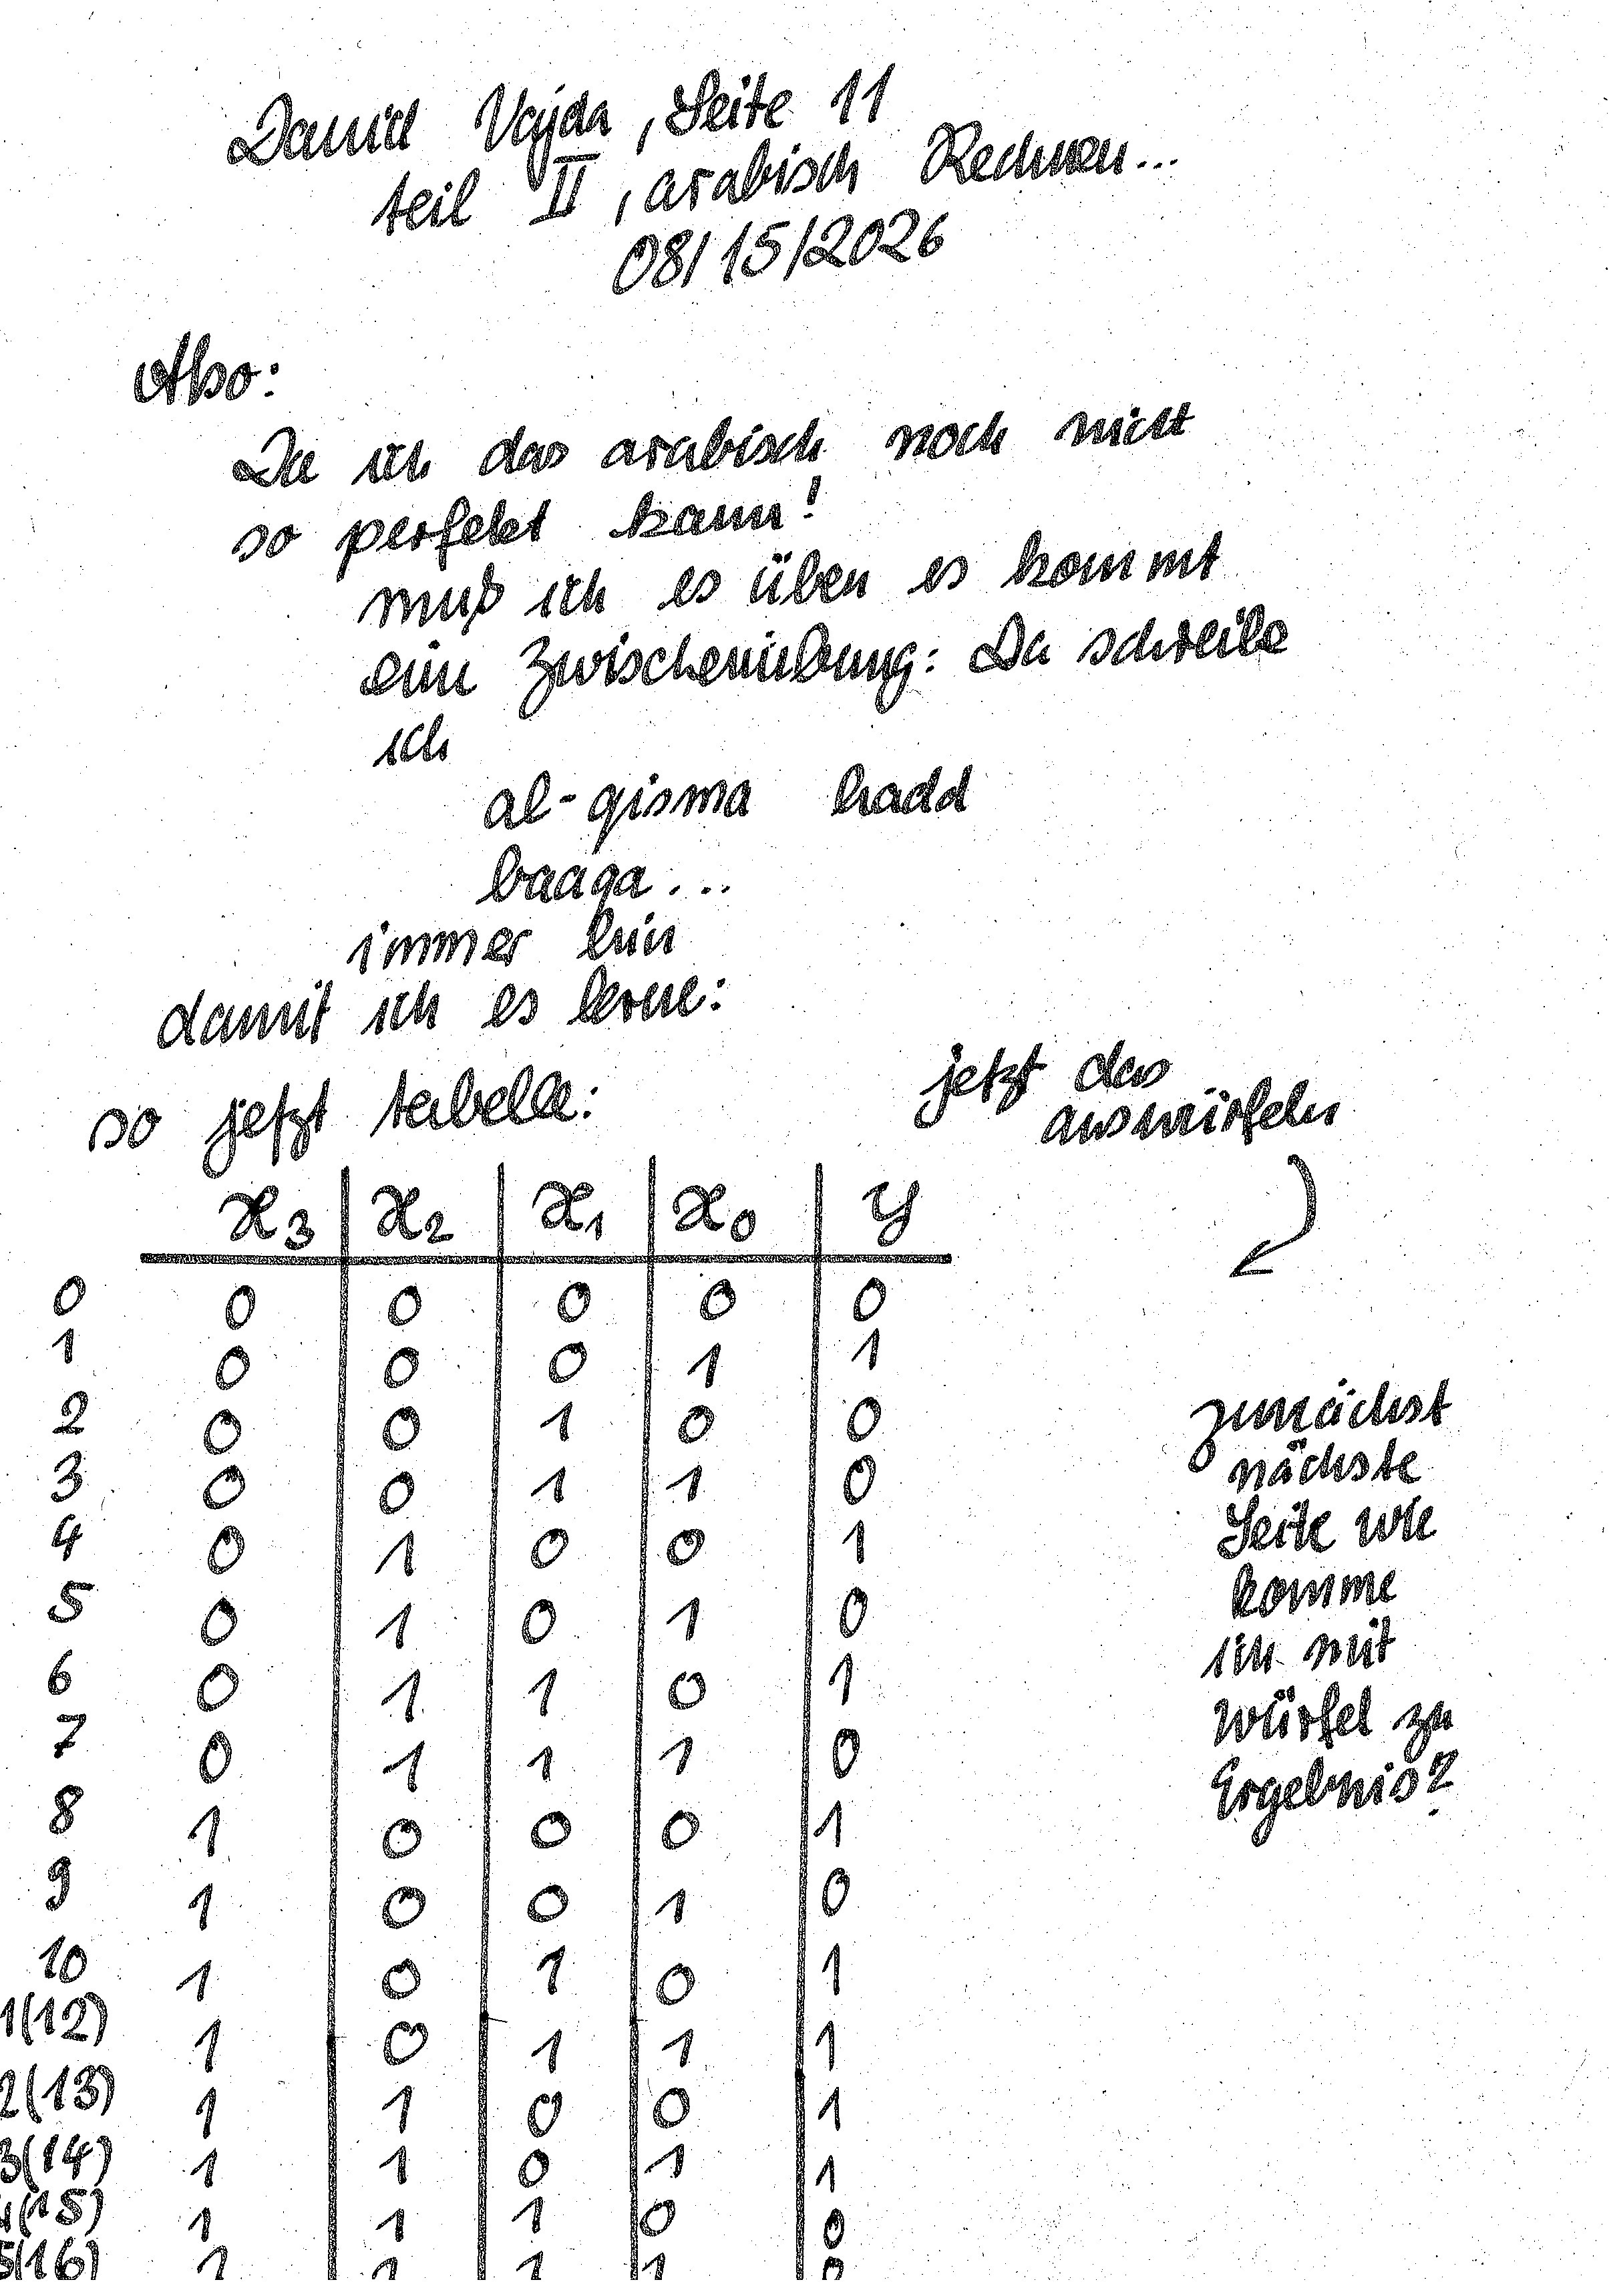 Daniel Vajda, Seite 11
teil II, arabisch Rechnen...
08/15/2026
Also:
Da ich das arabisch noch nicht
so perfekt kann!
muß ich es üben es kommt
ein Zwischenübung: Da schreibe
ich
al-qisma hadd
baaqa...
immer hin
damit ich es lerne:
so jetzt tabelle:
jetzt das
auswürfeln
x3 x2 x1 x0 y
0 0 0 0 0 0
1 0 0 0 1 1
2 0 0 1 0 0
3 0 0 1 1 0
4 0 1 0 0 1
5 0 1 0 1 0
6 0 1 1 0 1
7 0 1 1 1 0
8 1 0 0 0 1
9 1 0 0 1 0
10 1 0 1 0 1
1(12) 1 0 1 1 1
2(13) 1 1 0 0 1
3(14) 1 1 0 1 1
(15) 1 1 1 0 0
5(16) 1 1 1 1 0
zunächst
nächste
Seite wie
komme
ich mit
würfel zu
Ergebnis?